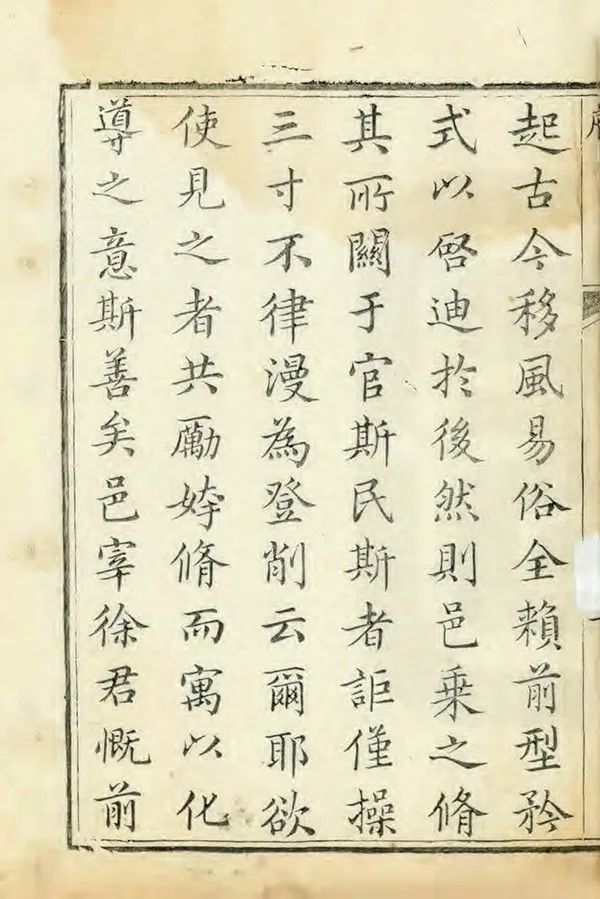 起古今移風易俗全賴前型矜
式以啓迪於後然則邑乗之脩
其所關于官斯民斯者詎僅操
三寸不律漫為登削云爾耶欲
使見之者共勵姱脩而寓以化
導之意斯善矣邑宰徐君慨前